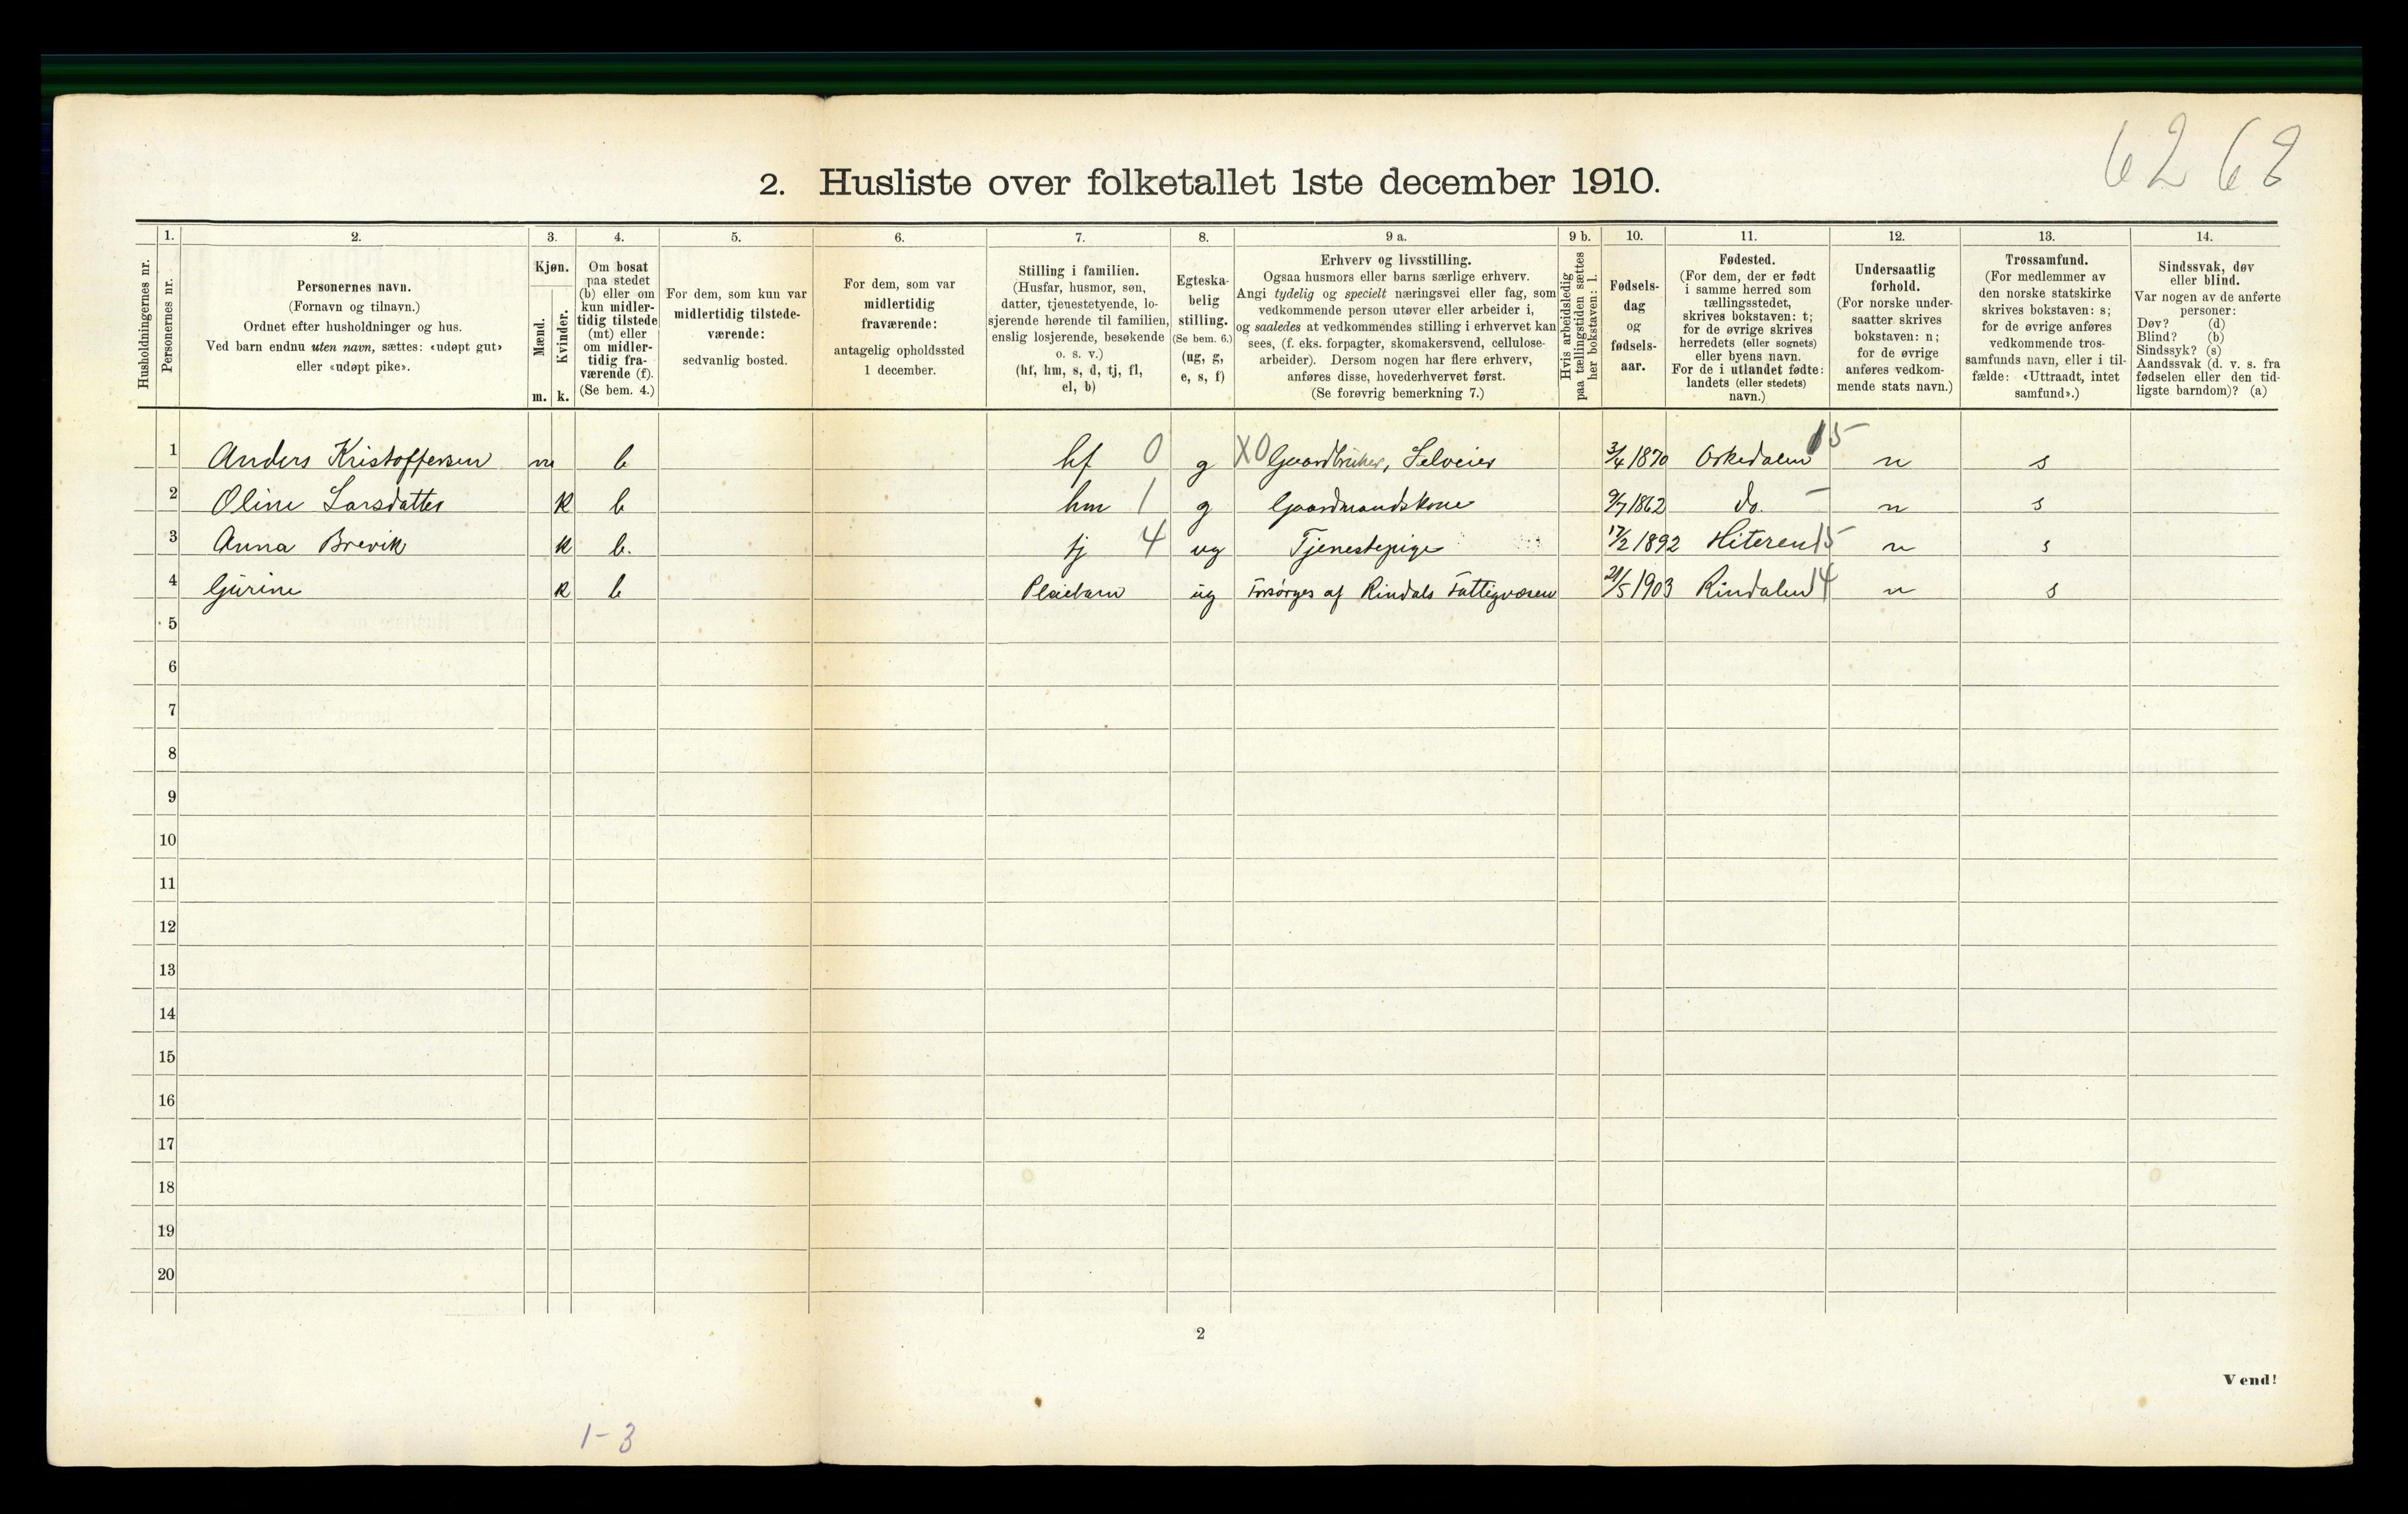 62 62
2. Husliste over folketallet 1ste december 1910.
Husholdningernes nr.
1.
Personernes nr.
2.
Personernes navn.
(Fornavn og tilnavn.)
Ordnet efter husholdninger og hus.
Ved barn endnu uten navn, sættes: «udøpt gut»
eller «udøpt pike».
3.
Kjøn.
Mænd.
Kvinder.
m.
k.
4.
Om bosat
paa stedet
(b) eller om
kun midler-
tidig tilstede
(mt) eller
om midler-
tidig fra-
værende (f).
(Se bem. 4.)
5.
For dem, som kun var
midlertidig tilstede-
værende:
sedvanlig bosted.
6.
For dem, som var
midlertidig
fraværende:
antagelig opholdssted
1 december.
7.
Stilling i familien.
(Husfar, husmor, søn,
datter, tjenestetyende, lo-
sjerende hørende til familien,
enslig losjerende, besøkende
o. s. v.)
(hf, hm, s, d, tj, fl,
el, b)
8.
Egteska-
belig
stilling.
(Se bem. 6.)
(ug, g,
e, s, f)
9 a.
Erhverv og livsstilling.
Ogsaa husmors eller barns særlige erhverv.
Angi tydelig og specielt næringsvei eller fag, som
vedkommende person utøver eller arbeider i,
og saaledes at vedkommendes stilling i erhvervet kan
sees, (f. eks. forpagter, skomakersvend, cellulose-
arbeider). Dersom nogen har flere erhverv,
anføres disse, hovederhvervet først.
(Se forøvrig bemerkning 7.)
9 b.
Hvis arbeidsledig
paa tællingstiden sættes
her bokstaven: l.
10.
Fødsels-
dag
og
fødsels-
aar.
11.
Fødested.
(For dem, der er født
i samme herred som
tællingsstedet,
skrives bokstaven: t;
for de øvrige skrives
herredets (eller sognets)
eller byens navn.
For de i utlandet fødte:
landets (eller stedets)
navn.)
12.
Undersaatlig
forhold.
(For norske under-
saatter skrives
bokstaven: n;
for de øvrige
anføres vedkom-
mende stats navn.)
13.
Trossamfund.
(For medlemmer av
den norske statskirke
skrives bokstaven: s;
for de øvrige anføres
vedkommende tros-
samfunds navn, eller i til-
fælde: «Uttraadt, intet
samfund».)
14.
Sindssvak, døv
eller blind.
Var nogen av de anførte
personer:
Døv? (d)
Blind? (b)
Sindssyk? (s)
Aandssvak (d. v. s. fra
fødselen eller den tid-
ligste barndom)? (a)
1 Anders Kristoffersen m b hf 0 g X0 Gaardbruker, Selveier 3/4 1870 Orkedalen 15 n s
2 Oline Larsdatter k b hm 1 g Gaardmandskone 9/7 1862 do. – n s
3 Anna Brevik k b. tj 4 ug Tjenestepige 17/2 1892 Hiteren 15 n s
4 Gurine k b Pleiebarn ug Forsørges af Rindals Fattigvæsen 21/5 1903 Rindalen 14 n s
5
6
7
8
9
10
11
12
13
14
15
16
17
18
19
20
2
Vend!
1-3